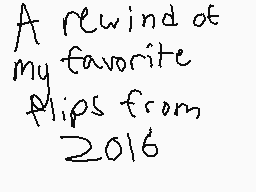 A rewind of
my favorite
flips from
2016